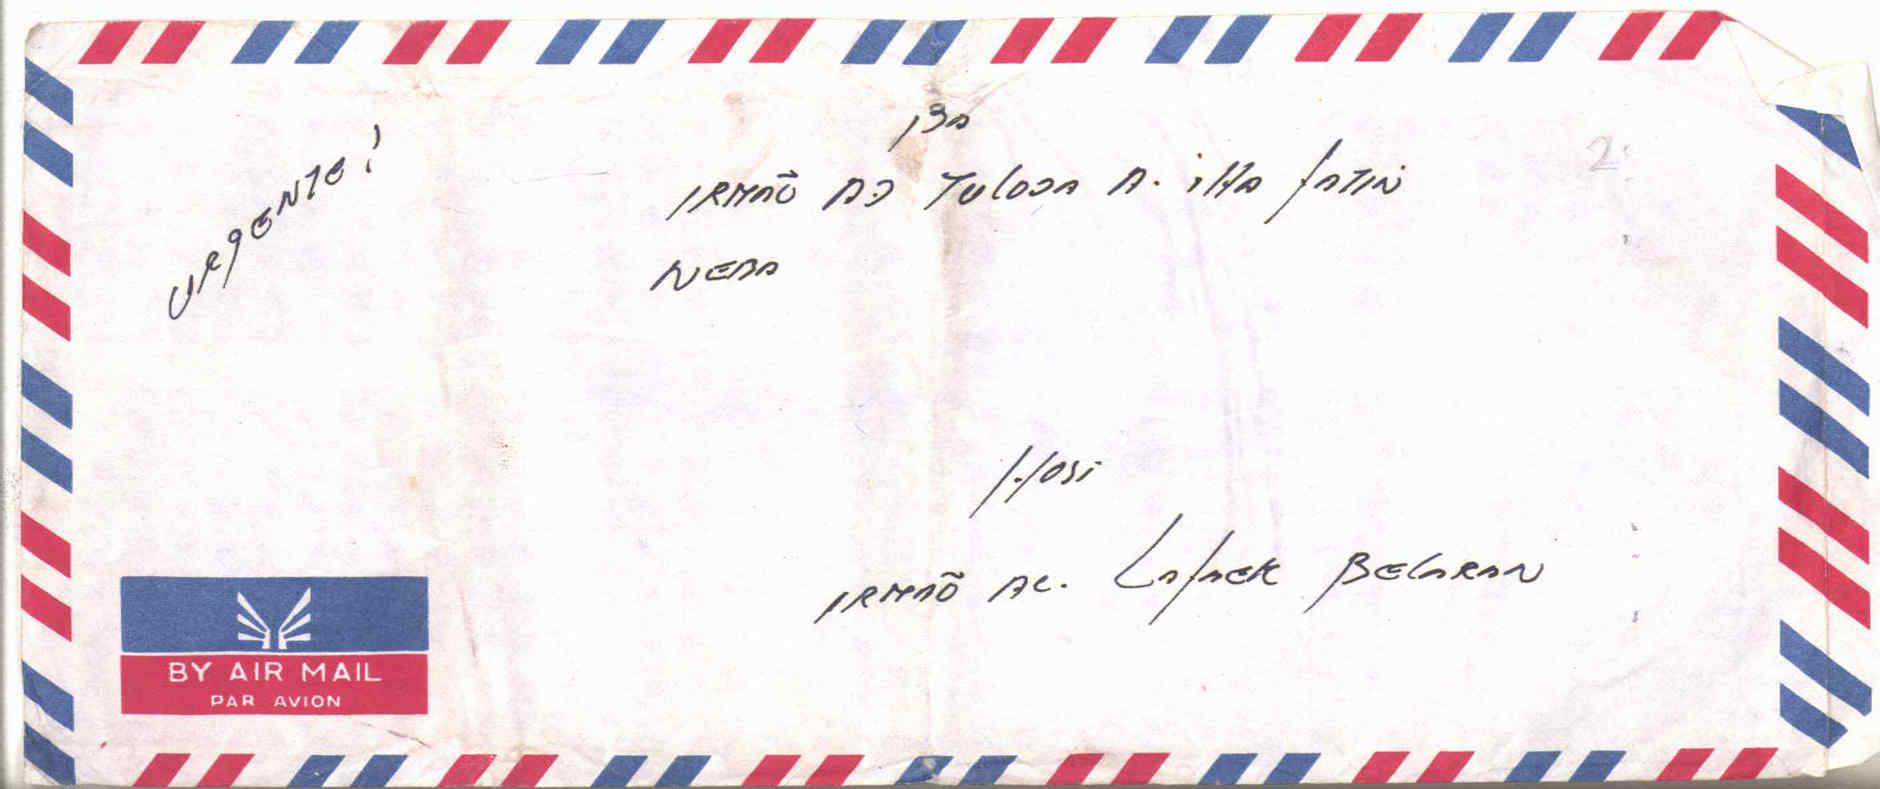 Urgente!
Ba
2
Irmão AJ Tuloda A. iha fatin
Neba
Hosi
Irmão AC. Lafaek Belaran
BY AIR MAIL
PAR AVION